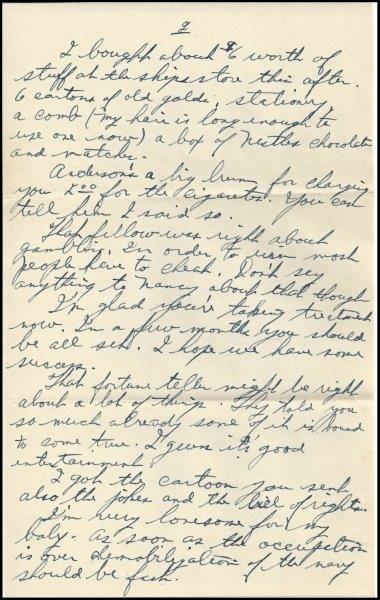 9
I bought about $6 worth of
stuff at the ships store this after.
6 cartons of old golds, stationery,
a comb (my hair is long enough to
use one now) a box of Nestles chocolate
and matches.
Anderson's a big bum for charging
you 2.00 for the cigarets. You can
tell him I said so.
That fellow was right about
gambling. In order to win most
people have to cheat. Don't say
anything to Nancy about that though
I'm glad you're taking treatments
now. In a few months you should
be all set. I hope we have some
success.
That fortune teller might be right
about a lot of things. They told you
so much already some of it is bound
to come true. I guess it's good
entertainment.
I got the cartoon you sent,
also the jokes and the bill of rights.
I'm very lonesome for my
baby. As soon as the occupation
is over demobilization of the navy
should be fast.